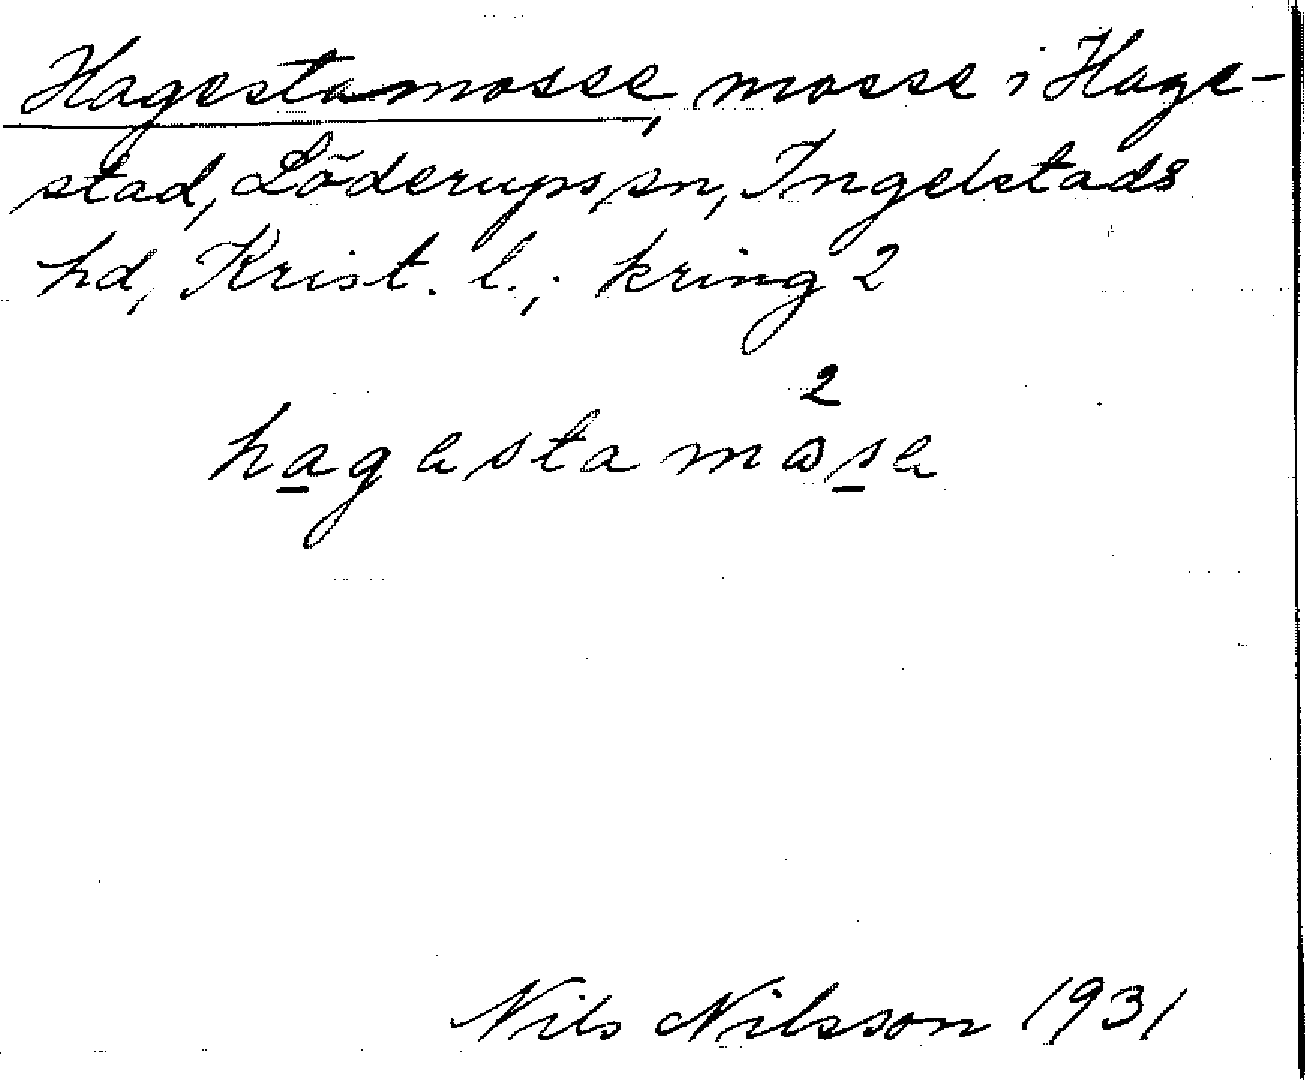 Hagestamosse, mosse i Hage-
stad, Löderups sn, Ingelstads
hd, Krist. l.; kring 2
2
hagastamosa
Nils Nilsson 1931